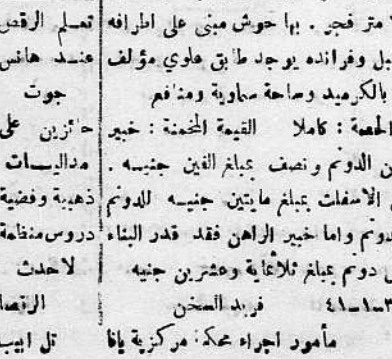 متر فجر . بها حوش مبنى على اطرافه
وفرانده يوجد طابق علوي مؤلف
بالكرميد وساحة سماوية ومنافع
الحصة : كاملا القيمة المخمنة : خبير
الدونم ونصف بمبلغ الفين جنيه .
الاسفلت بمبلغ مايتين جنيه للدونم
دونم واما خبير الراهن فقد قدر البناء
دونم بمبلغ ثلاثماية وعشرين جنيه
٣-١-٤١ فريد السخن
مأمور اجراء محكمة مركزية يافا
تعلم الرقص
عند هانس
جوت
حائزين على
مداليات
ذهبية وفضية
دروس منظمة
لاحدث
الرقصا
تل ابيب